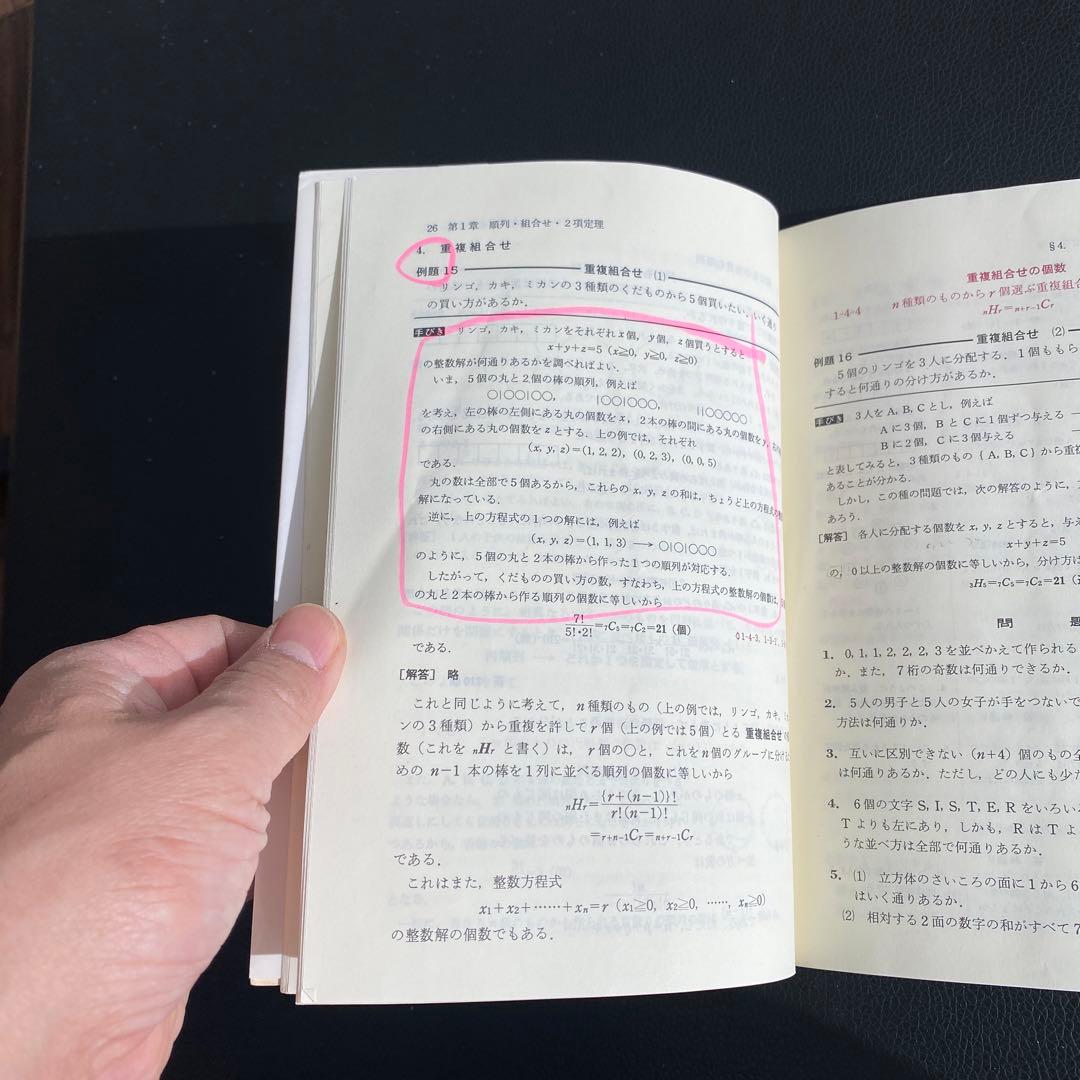 26 第1章 順列・組合せ・2項定理
4. 重複組合せ
例題 15 重複組合せ (1)
リンゴ,カキ,ミカンの3種類のくだものから5個買いたい.いく通り
の買い方があるか.
手びき リンゴ,カキ,ミカンをそれぞれx個,y個,z個買うとすると
x+y+z=5 (x≧0, y≧0, z≧0)
の整数解が何通りあるかを調べればよい.
いま,5個の丸と2個の棒の順列,例えば
○|○○|○○, |○○|○○○, ||○○○○○
を考え,左の棒の左側にある丸の個数をx,2本の棒の間にある丸の個数をy,
の右側にある丸の個数をzとする.上の例では,それぞれ
(x, y, z)=(1, 2, 2), (0, 2, 3), (0, 0, 5)
である.
丸の数は全部で5個あるから,これらのx, y, zの和は,ちょうど上の方程式の
解になっている.
逆に,上の方程式の1つの解には,例えば
(x, y, z)=(1, 1, 3) → ○|○|○○○
のように,5個の丸と2本の棒から作った1つの順列が対応する.
したがって,くだものの買い方の数,すなわち,上の方程式の整数解の個数は,
の丸と2本の棒から作る順列の個数に等しいから
7!/5!・2! =₇C₅=₇C₂=21 (個)
◇1-4-3, 1-3-
である.
[解答] 略
これと同じように考えて,n種類のもの(上の例では,リンゴ,カキ,ミカ
ンの3種類)から重複を許してr個(上の例では5個)とる 重複組合せの
数(これを nHr と書く)は,r個の○と,これをn個のグループに分ける
めの n−1 本の棒を1列に並べる順列の個数に等しいから
nHr={r+(n−1)}!/r!(n−1)!
=r+n−1Cr=n+r−1Cr
である.
これはまた,整数方程式
x₁+x₂+……+xₙ=r (x₁≧0, x₂≧0, ……, xₙ≧0)
の整数解の個数でもある.
§4.
重複組合せの個数
1-4-4 n種類のものからr個選ぶ重複組合
nHr=n+r−1Cr
例題 16 重複組合せ (2)
5個のリンゴを3人に分配する.1個ももら
すると何通りの分け方があるか.
手びき 3人をA, B, Cとし,例えば
Aに3個,BとCに1個ずつ与える
Bに2個,Cに3個与える
と表してみると,3種類のもの{A, B, C}から重複
あることが分かる.
しかし,この種の問題では,次の解答のように,
あろう.
[解答] 各人に分配する個数をx, y, zとすると,与え
x+y+z=5
の,0以上の整数解の個数に等しいから,分け方は
₃H₅=₇C₅=₇C₂=21 (
問 題
1. 0, 1, 1, 2, 2, 2, 3 を並べかえて作られる
か.また,7桁の奇数は何通りできるか.
2. 5人の男子と5人の女子が手をつないで
方法は何通りか.
3. 互いに区別できない(n+4)個のもの全
は何通りあるか.ただし,どの人にも少
4. 6個の文字S, I, S, T, E, Rをいろい
Tよりも左にあり,しかも,RはTよ
うな並べ方は全部で何通りあるか.
5. (1) 立方体のさいころの面に1から6
はいく通りあるか.
(2) 相対する2面の数字の和がすべて7